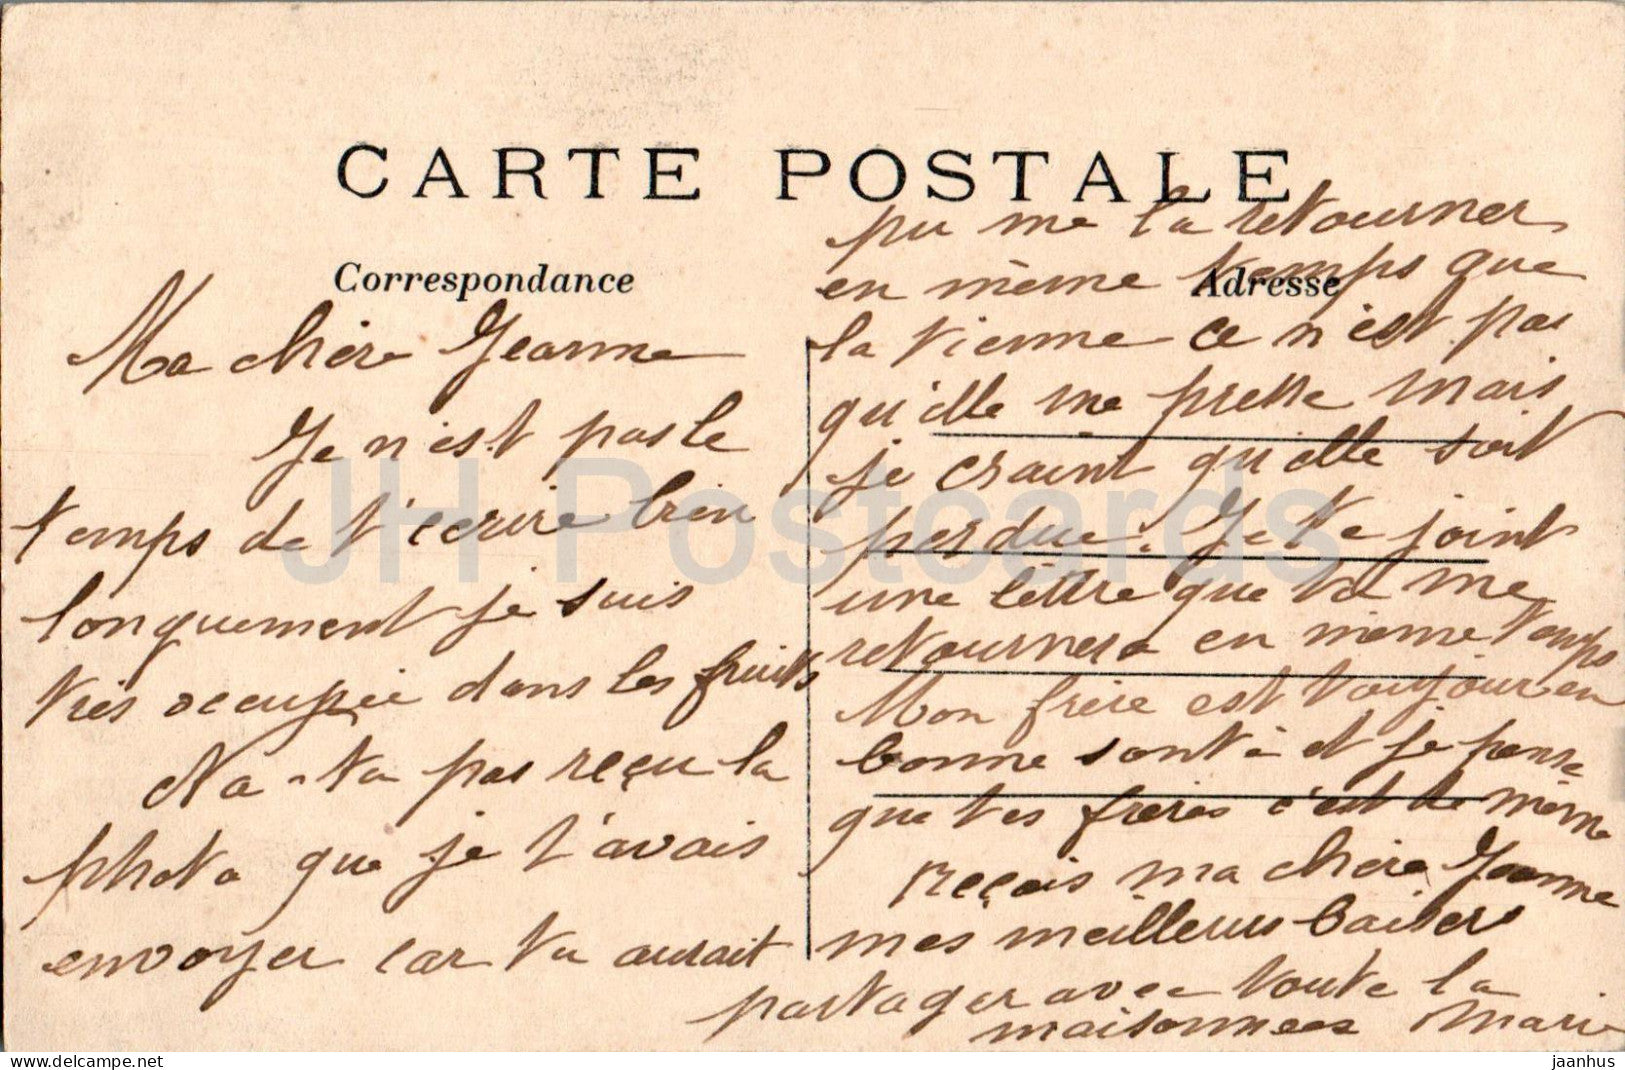 CARTE POSTALE
Correspondance
Adresse
Ma chère Jeanne
Je n'est pas le
temps de t'ecrire bien
longuement je suis
très occupée dans les fruits
Na-ta pas reçu la
photo que je t'avais
envoyer car tu aurait
pu me la retourner
en même temps que
la tienne ce n'est pas
qu'elle me presse mais
je craint qu'elle soit
perdue. Je te joint
une lettre que tu me
retournera en même temps
Mon frère est toujour en
bonne santé et je pense
que tes frères c'est de même
reçois ma chère Jeanne
mes meilleurs baisers
partager avec toute la
maisonnées Marie
JH Postcards
delcampe.net
jaanhus